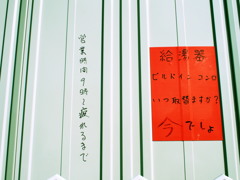 営業時間9時〜疲れるまで
給湯器
ビルドインコンロ
いつ取替ますか?
今でしょ